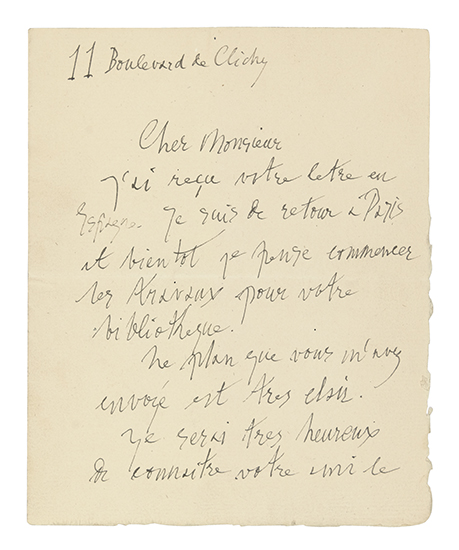 11 Boulevard de Clichy
Cher Monsieur
J'ai reçu votre letre en
Espagne. Je suis de retour à Paris
et bientot je pense commencer
les travaux pour votre
bibliotheque.
Le plan que vous m'avez
envoyé est tres clair.
Je serai tres heureux
de connaitre votre ami le